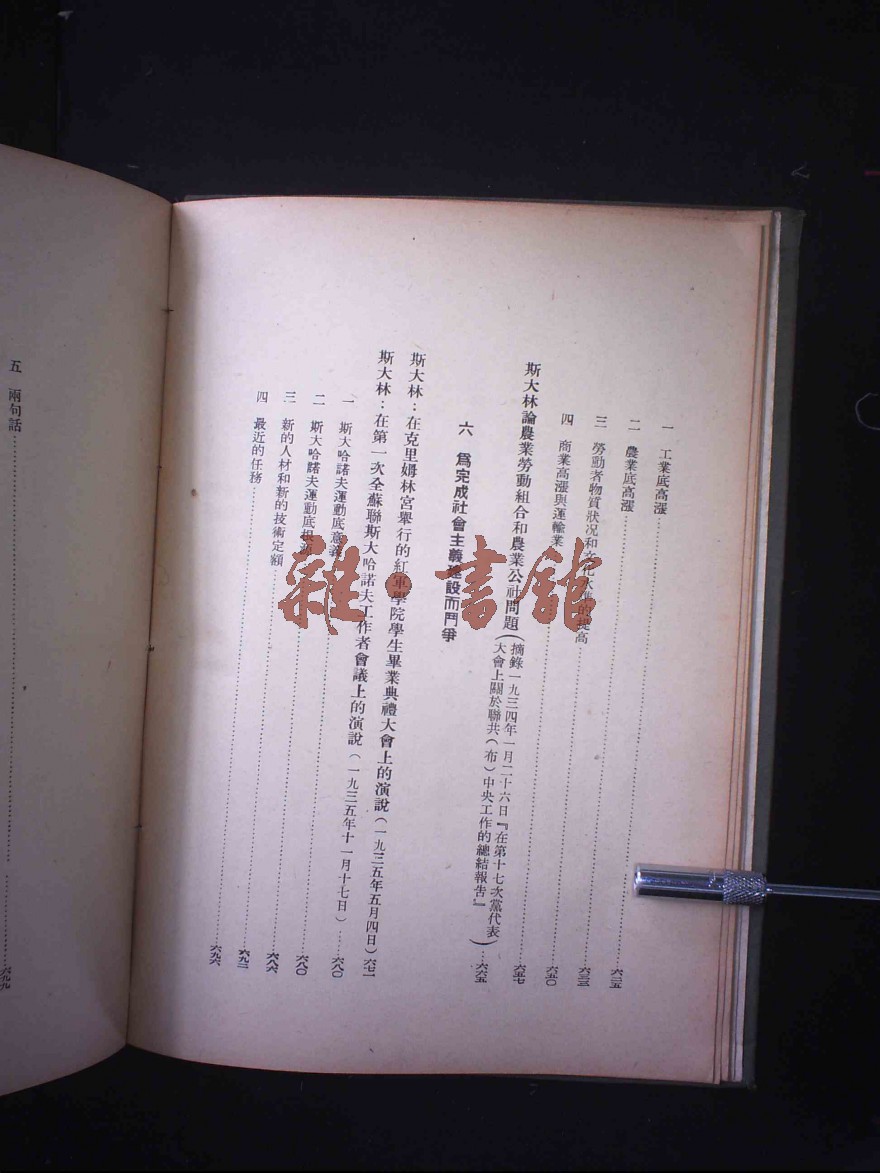 一　工業底高漲……六二五
二　農業底高漲……六三三
三　勞動者物質狀況和文化水準的提高……六五〇
四　商業高漲與運輸業……六五七
斯大林論農業勞動組合和農業公社問題（摘錄一九三四年一月二十六日『在第十七次黨代表
大會上關於聯共（布）中央工作的總結報告』）……六六五
六　爲完成社會主義建設而鬥爭
斯大林：在克里姆林宮舉行的紅軍學院學生畢業典禮大會上的演說（一九三五年五月四日）六七一
斯大林：在第一次全蘇聯斯大哈諾夫工作者會議上的演說（一九三五年十一月十七日）……六八〇
一　斯大哈諾夫運動底意義……六八〇
二　斯大哈諾夫運動底根源……六八六
三　新的人材和新的技術定額……六九二
四　最近的任務……六九六
五　兩句話……六九九
雜·書館